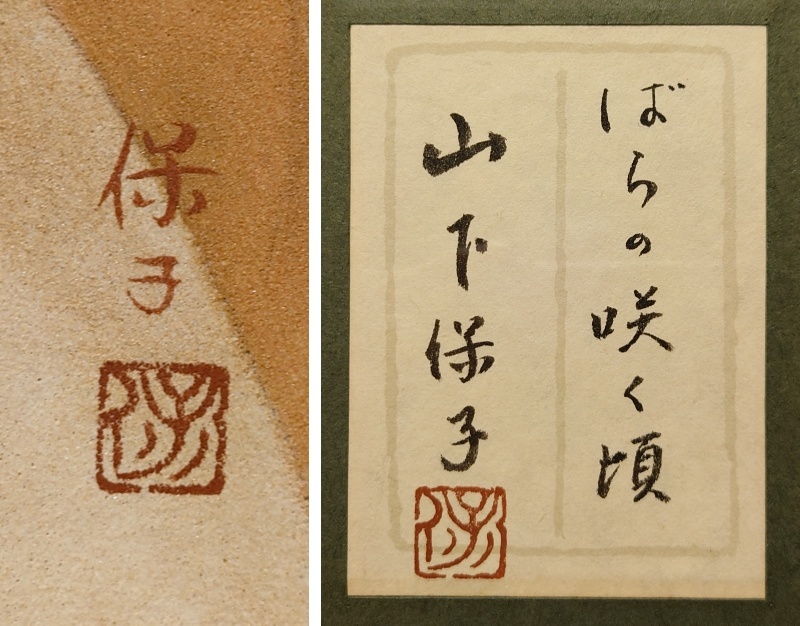 保子
保
ばらの咲く頃
山下保子
保